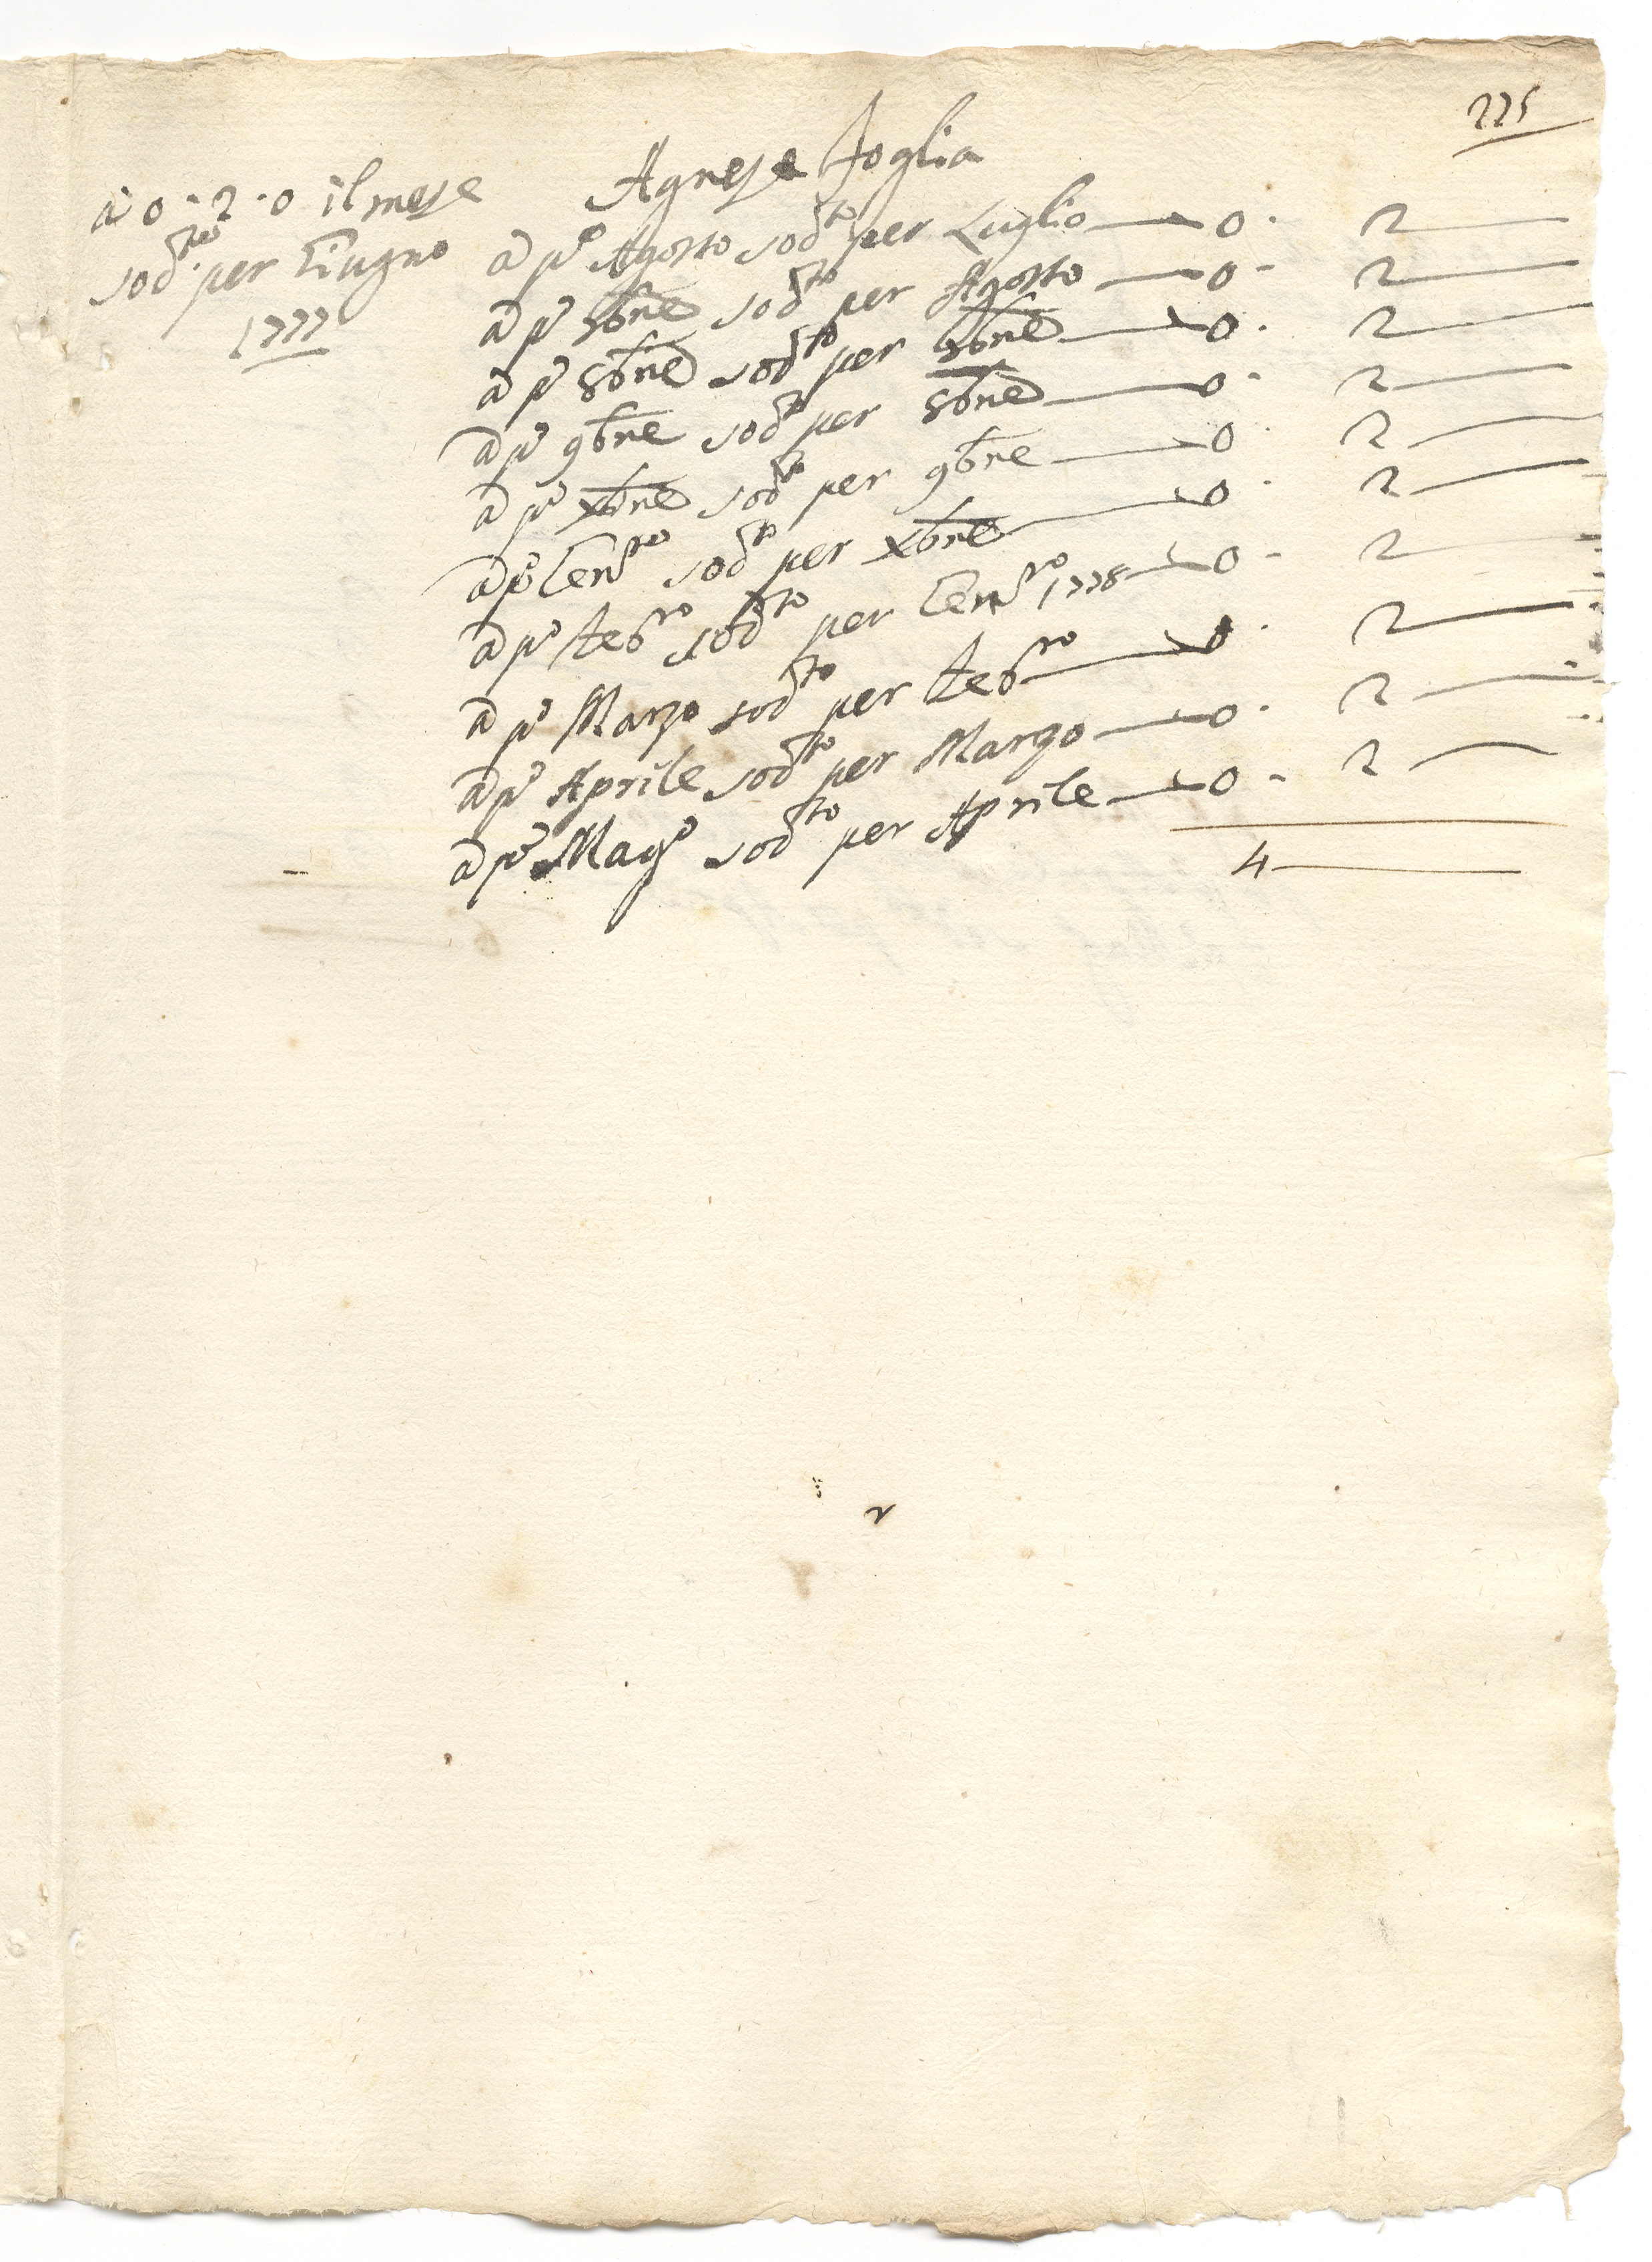 225
Agnese Foglia
à 0 - 2 - 0 il mese
sod.to per Giugno
1777
a p.o Agosto sod.to per Luglio — 0 - 2 —
a p.o 7bre sod.to per Agosto — 0 - 2 —
a p.o 8bre sod.to per 7bre — 0 - 2 —
a p.o 9bre sod.to per 8bre — 0 - 2 —
a p.o Xbre sod.to per 9bre — 0 - 2 —
a p.o Gen.ro sod.to per Xbre — 0 - 2 —
a p.o Feb.ro sod.to per Gen.ro 1778 — 0 - 2 —
a p.o Marzo sod.to per Feb.ro — 0 - 2 —
a p.o Aprile sod.to per Marzo — 0 - 2 —
a p.o Mag.o sod.to per Aprile — 0 - 2 —
4 —